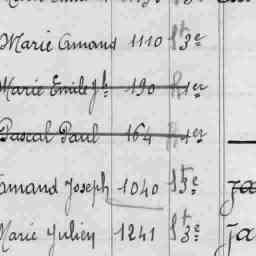 Marie Amand 1110 St 3e
Marie Emile Jh 190 1er
Pascal Paul 164 1er
Amand Joseph 1040 St 3e
Marie Julien 1241 St 3e